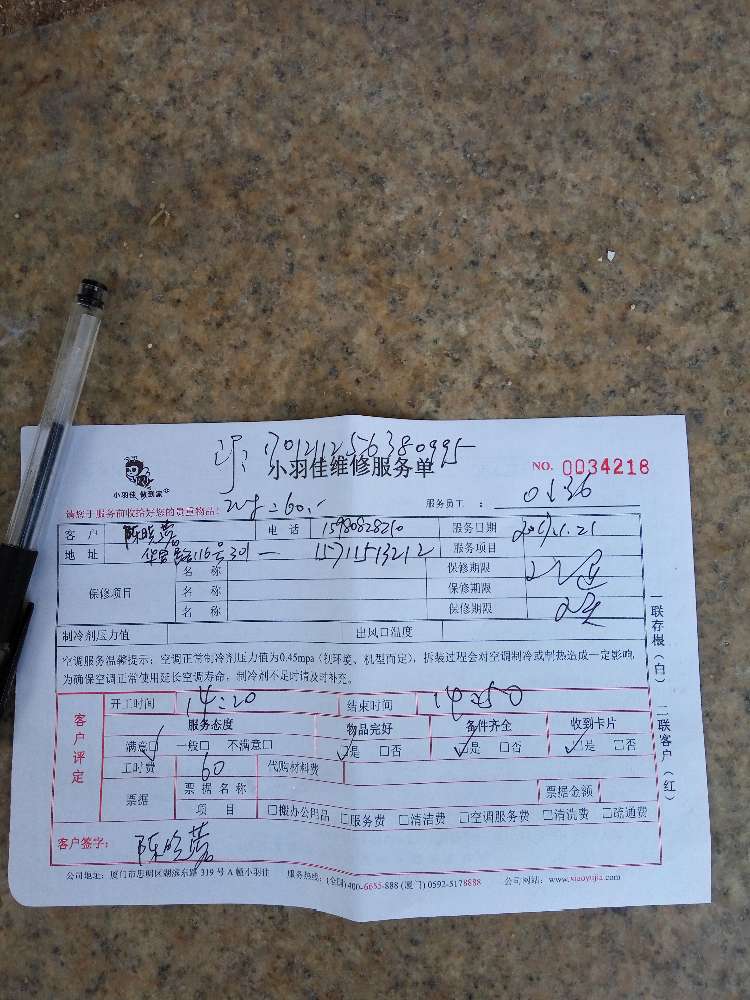 301211256380995
小羽佳 做到家
小羽佳维修服务单
NO. 0034218
=60.
请您于服务前收给好您的贵重物品!
服务员工: 0136
客户 陈晓 电话 15980828210 服务日期
地址 116号301 — 15711513212 服务项目
保修项目
名称 保修期限
名称 保修期限
名称 保修期限
制冷剂压力值 出风口温度
空调服务温馨提示:空调正常制冷剂压力值为0.45mpa(视环境、机型而定),拆装过程会对空调制冷或制热造成一定影响,
为确保空调正常使用延长空调寿命,制冷剂不足时请及时补充。
一联存根(白) 二联客户(红)
客户评定
开工时间 14:20 结束时间 14:50
服务态度 物品完好 备件齐全 收到卡片
满意□ 一般□ 不满意□ □是 □否 □是 □否 □是 □否
工时费 60 代购材料费
票据 票据名称 票据金额
项目 □搬办公用品 □服务费 □清洁费 □空调服务费 □清洗费 □疏通费
客户签字: 陈晓
公司地址:厦门市思明区湖滨东路 319 号 A 幢小羽佳 服务热线:(全国)400-6655-888 (厦门) 0592-5178888 公司网站:www.xiaoyujia.com